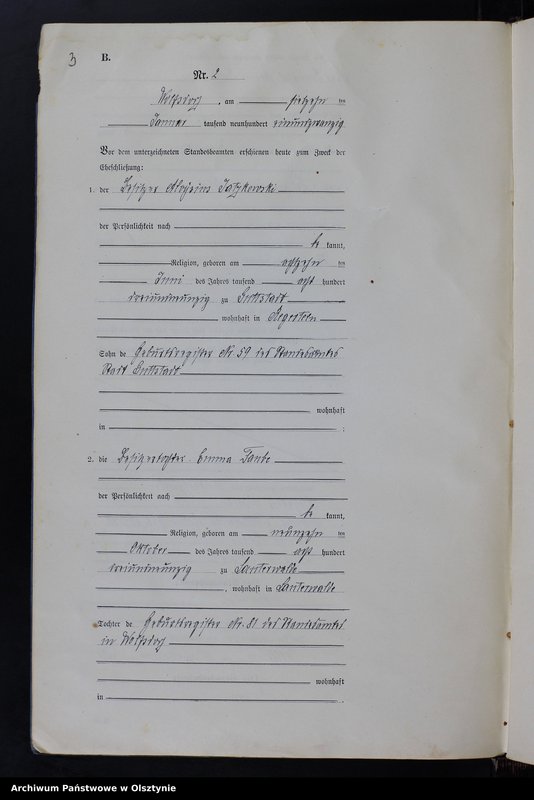 3
B.
Nr. 2
Wolfsdorf, am siebzehn ten
Januar tausend neunhundert einundzwanzig
Vor dem unterzeichneten Standesbeamten erschienen heute zum Zweck der
Eheschließung:
1. der Besitzer Aloysius
der Persönlichkeit nach
be kannt,
Religion, geboren am achtzehn ten
Juni des Jahres tausend acht hundert
dreiundneunzig zu Guttstadt
wohnhaft in Regerteln
Sohn de Geburtsregister Nr. 59 des Standesamtes
Stadt Guttstadt
wohnhaft
in :
2. die Besitzertochter Emma
der Persönlichkeit nach
be kannt,
Religion, geboren am neunzehn ten
Oktober des Jahres tausend acht hundert
dreiundneunzig zu
, wohnhaft in
Tochter de Geburtsregister Nr. 81 des Standesamtes
in Wolfsdorf
wohnhaft
in .
Archiwum Państwowe w Olsztynie